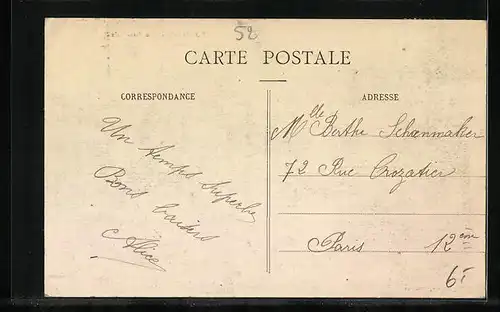 52
CARTE POSTALE
CORRESPONDANCE
Un temps superbe
Bons baisers
Alice
ADRESSE
Mlle Berthe Schoenmaker
72 Rue Crozatier
Paris 12ème
6f